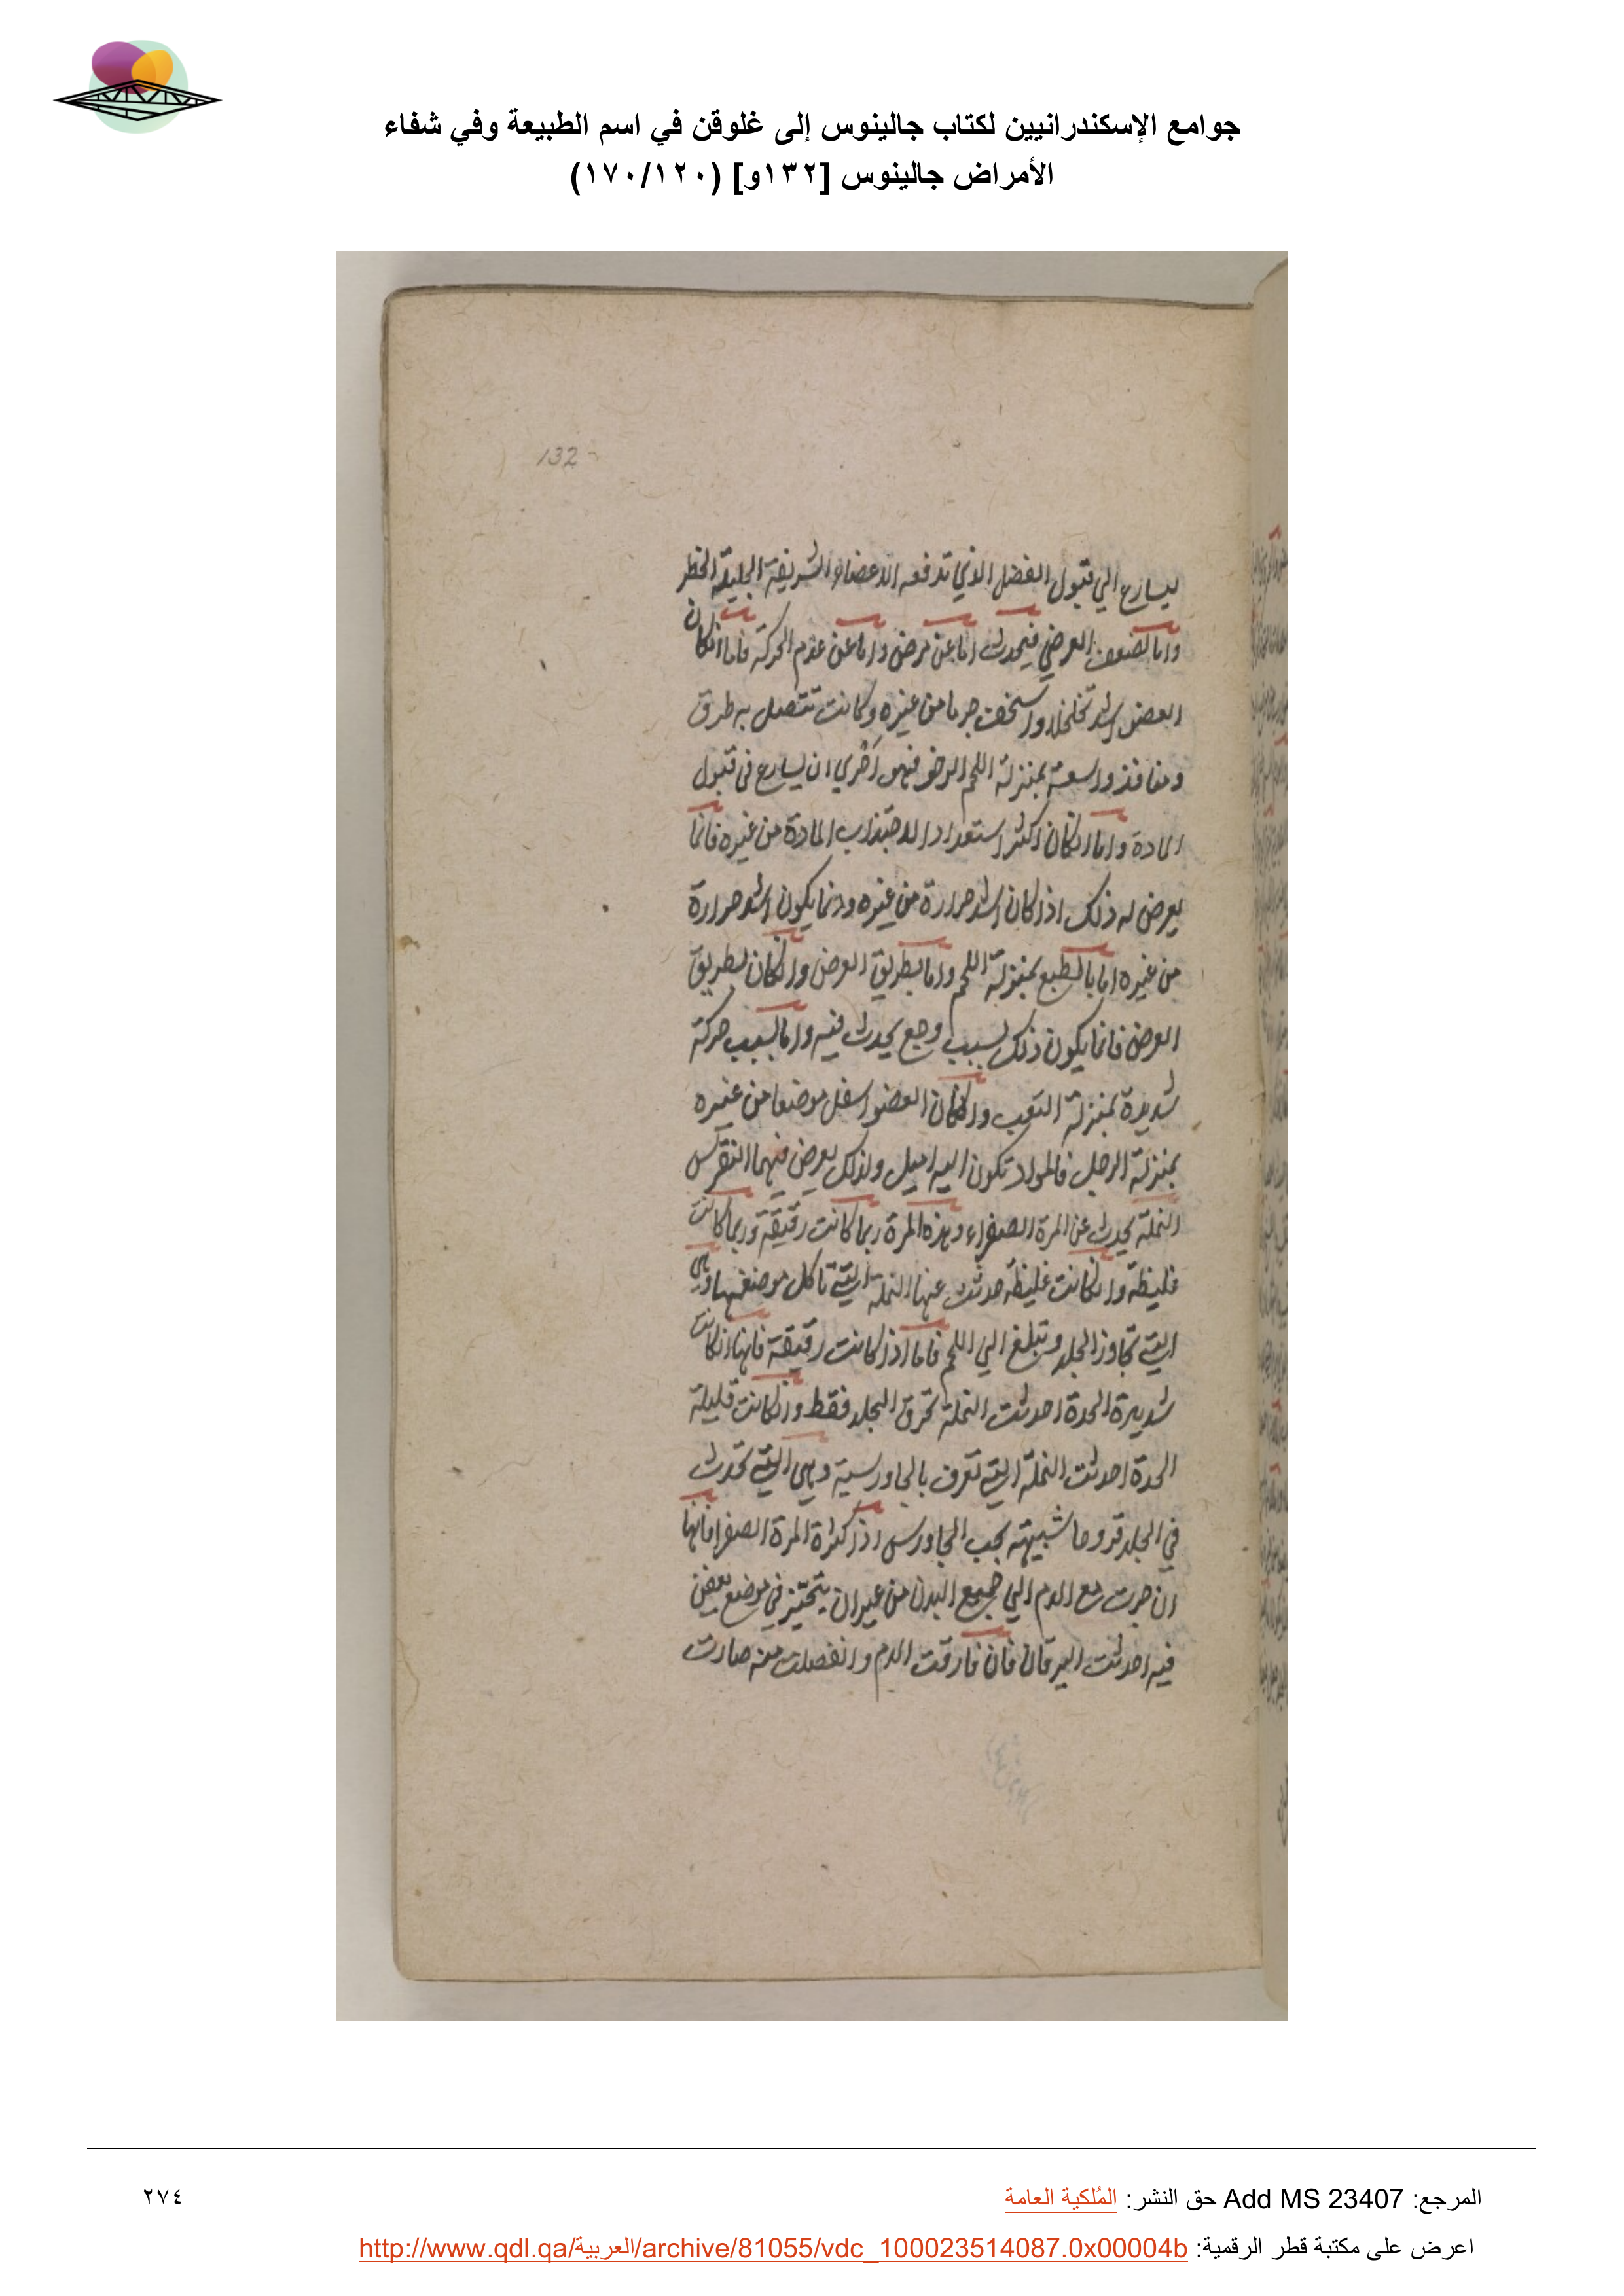 جوامع الإسكندرانيين لكتاب جالينوس إلى غلوقن في اسم الطبيعة وفي شفاء
الأمراض جالينوس [١٣٢و] (١٧٠/١٢٠)
132
ليسارع الي قبول الفضل الذي تدفعه الاعضاء الشريفة الجليلة الخطر
واما لضعف العرضي فيحدث اما عن مرض واما عن عدم الحركة فاما انكان
العضو اشد تخلخلا واسخف جرما من غيره وكانت تتصل به طرق
ومنافذ واسعة بمنزلة اللحم الرخو فهو احري ان يسارع في قبول
المادة واما انكان اكثر استعدادا لاجتذاب المادة من غيره فانما
يعرض له ذلك اذا كان اشد حرارة من غيره وانما يكون اشد حرارة
من غيره اما بالطبع بمنزلة اللحم واما بطريق العرض وانكان بطريق
العرض فانما يكون ذلك لسبب وجع يحدث فيه واما لسبب حركة
شديدة بمنزلة التعب وانكان العضو اسفل موضعا من غيره
بمنزلة الرجل فالمواد تكون اليه اميل ولذلك يعرض فيهما النقرس
النملة يحدث عن المرة الصفراء وهذه المرة ربما كانت رقيقة وربما كانت
غليظة وانكانت غليظة حدثت عنها النملة التي تاكل موضعها وهي
التي تجاوز الجلد وتبلغ الي اللحم فاما اذا كانت رقيقة فانها انكانت
شديدة الحدة احدثت النملة تحرق الجلد فقط وانكانت قليلة
الحدة احدثت النملة التي تعرف بالجاورسية وهي التي تحدث
في الجلد قروحا شبيهة بحب الجاورس اذا كثرة المرة الصفرا فانها
ان جرت مع الدم الي جميع البدن من غير ان يتحيز في موضع يعفن
فيه احدثت اليرقان فان فارقت الدم وانفصلت منه صارت
المرجع: Add MS 23407 حق النشر: المُلكية العامة
٢٧٤
اعرض على مكتبة قطر الرقمية: http://www.qdl.qa/العربية/archive/81055/vdc_100023514087.0x00004b